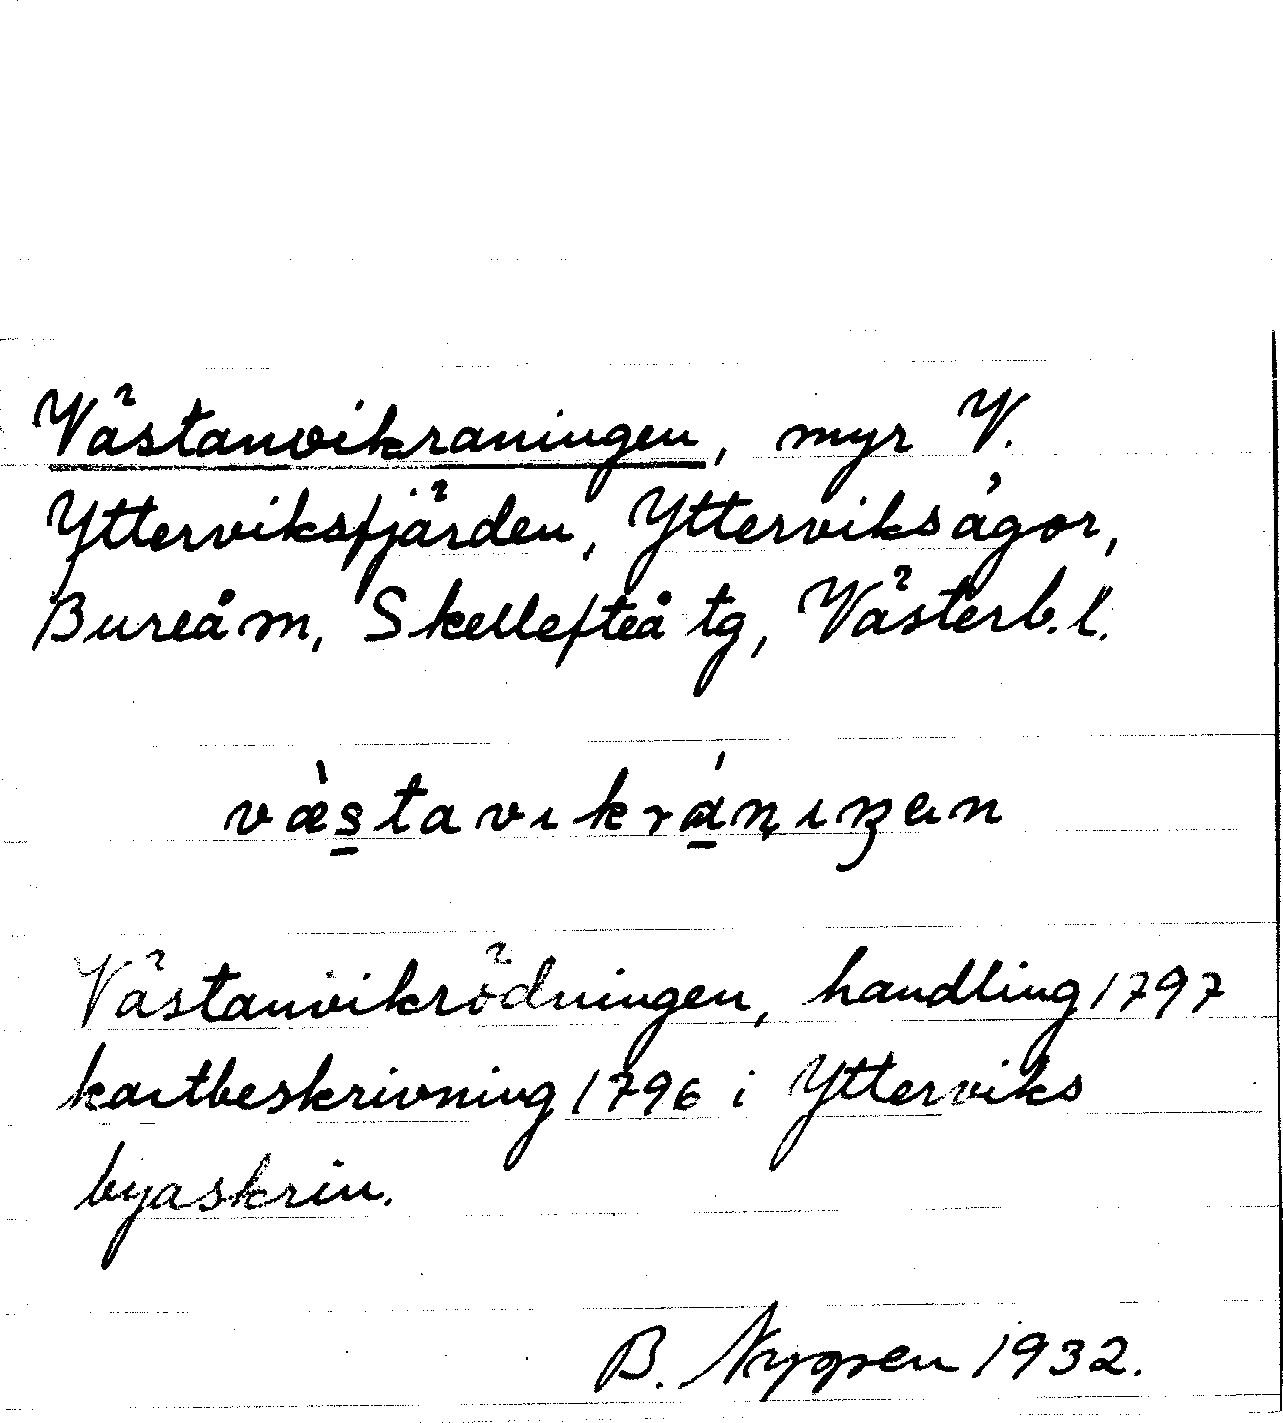 Västanvikraningen, myr V.
Ytterviksfjärden, Ytterviks ägor,
Bureå m, Skellefteå tg, Västerb. l.
væ̀s̲tavıkrá̲ṇıŋen
Västanvikrödningen, handling 1797
kartbeskrivning 1796 i Ytterviks
byaskrin.
B. Nygren 1932.